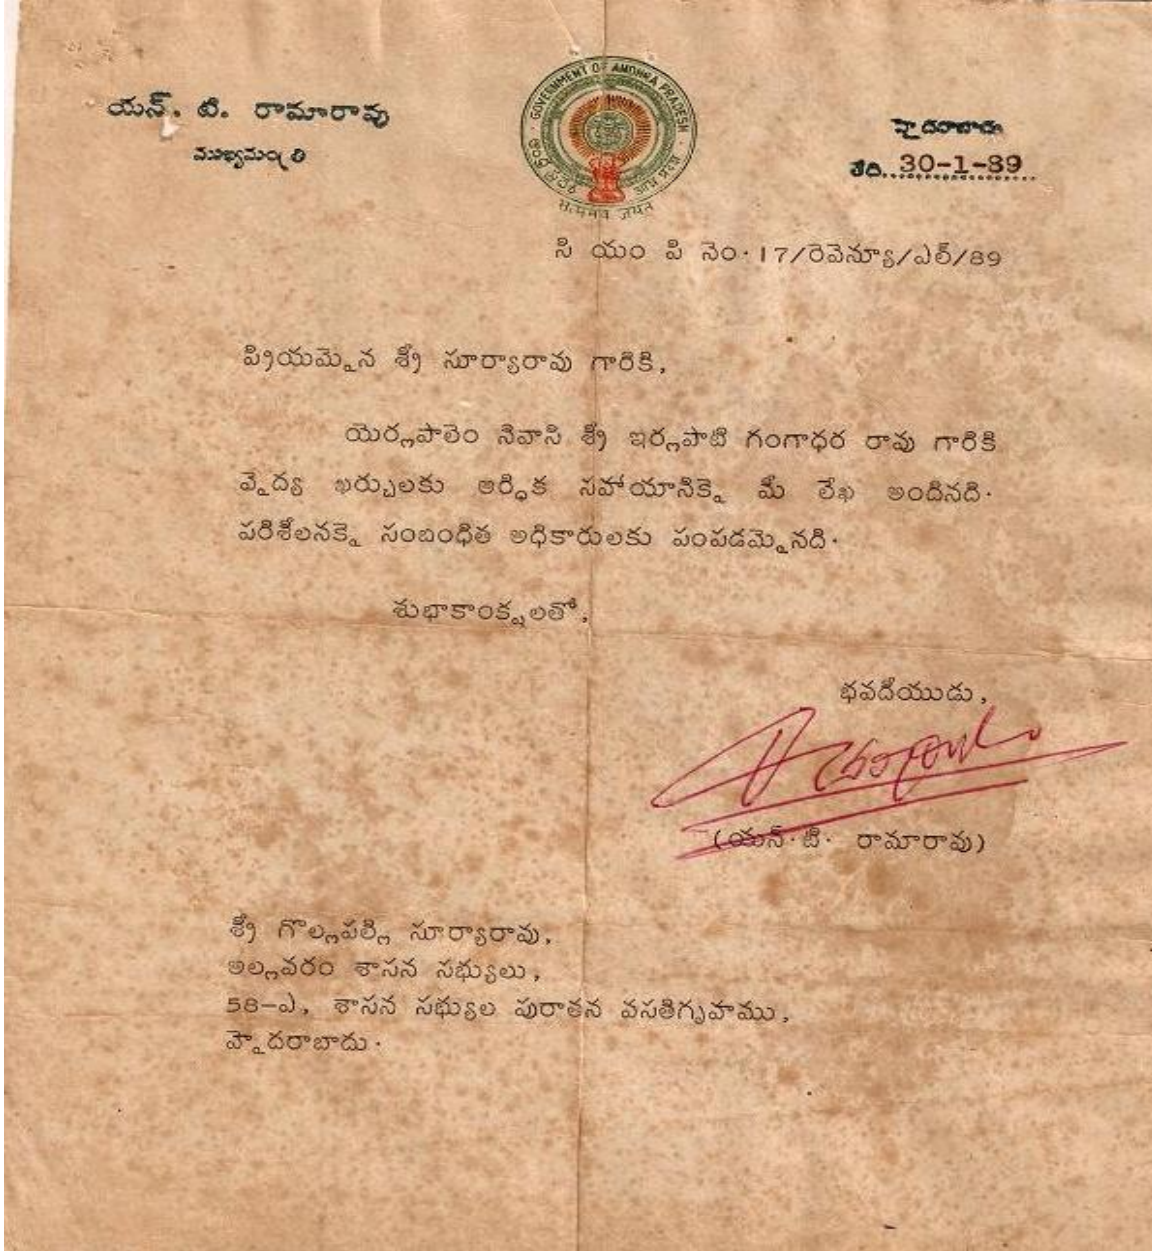 యన్. టి. రామారావు
ముఖ్యమంత్రి
GOVERNMENT OF ANDHRA PRADESH
ఆంధ్ర ప్రదేశ్
आंध्र प्रदेश
सत्यमेव जयते
హైదరాబాదు
తేది..30-1-89
సి యం పి నెం. 17/రెవెన్యూ/ఎల్/89
ప్రియమైన శ్రీ సూర్యారావు గారికి,
యెర్లపాలెం నివాసి శ్రీ ఇర్లపాటి గంగాధర రావు గారికి
వైద్య ఖర్చులకు ఆర్ధిక సహాయానికై మీ లేఖ అందినది.
పరిశీలనకై సంబంధిత అధికారులకు పంపడమైనది.
శుభాకాంక్షలతో,
భవదీయుడు,
(యన్.టి. రామారావు)
శ్రీ గొల్లపల్లి సూర్యారావు,
అల్లవరం శాసన సభ్యులు,
58-ఎ, శాసన సభ్యుల పురాతన వసతిగృహము,
హైదరాబాదు.